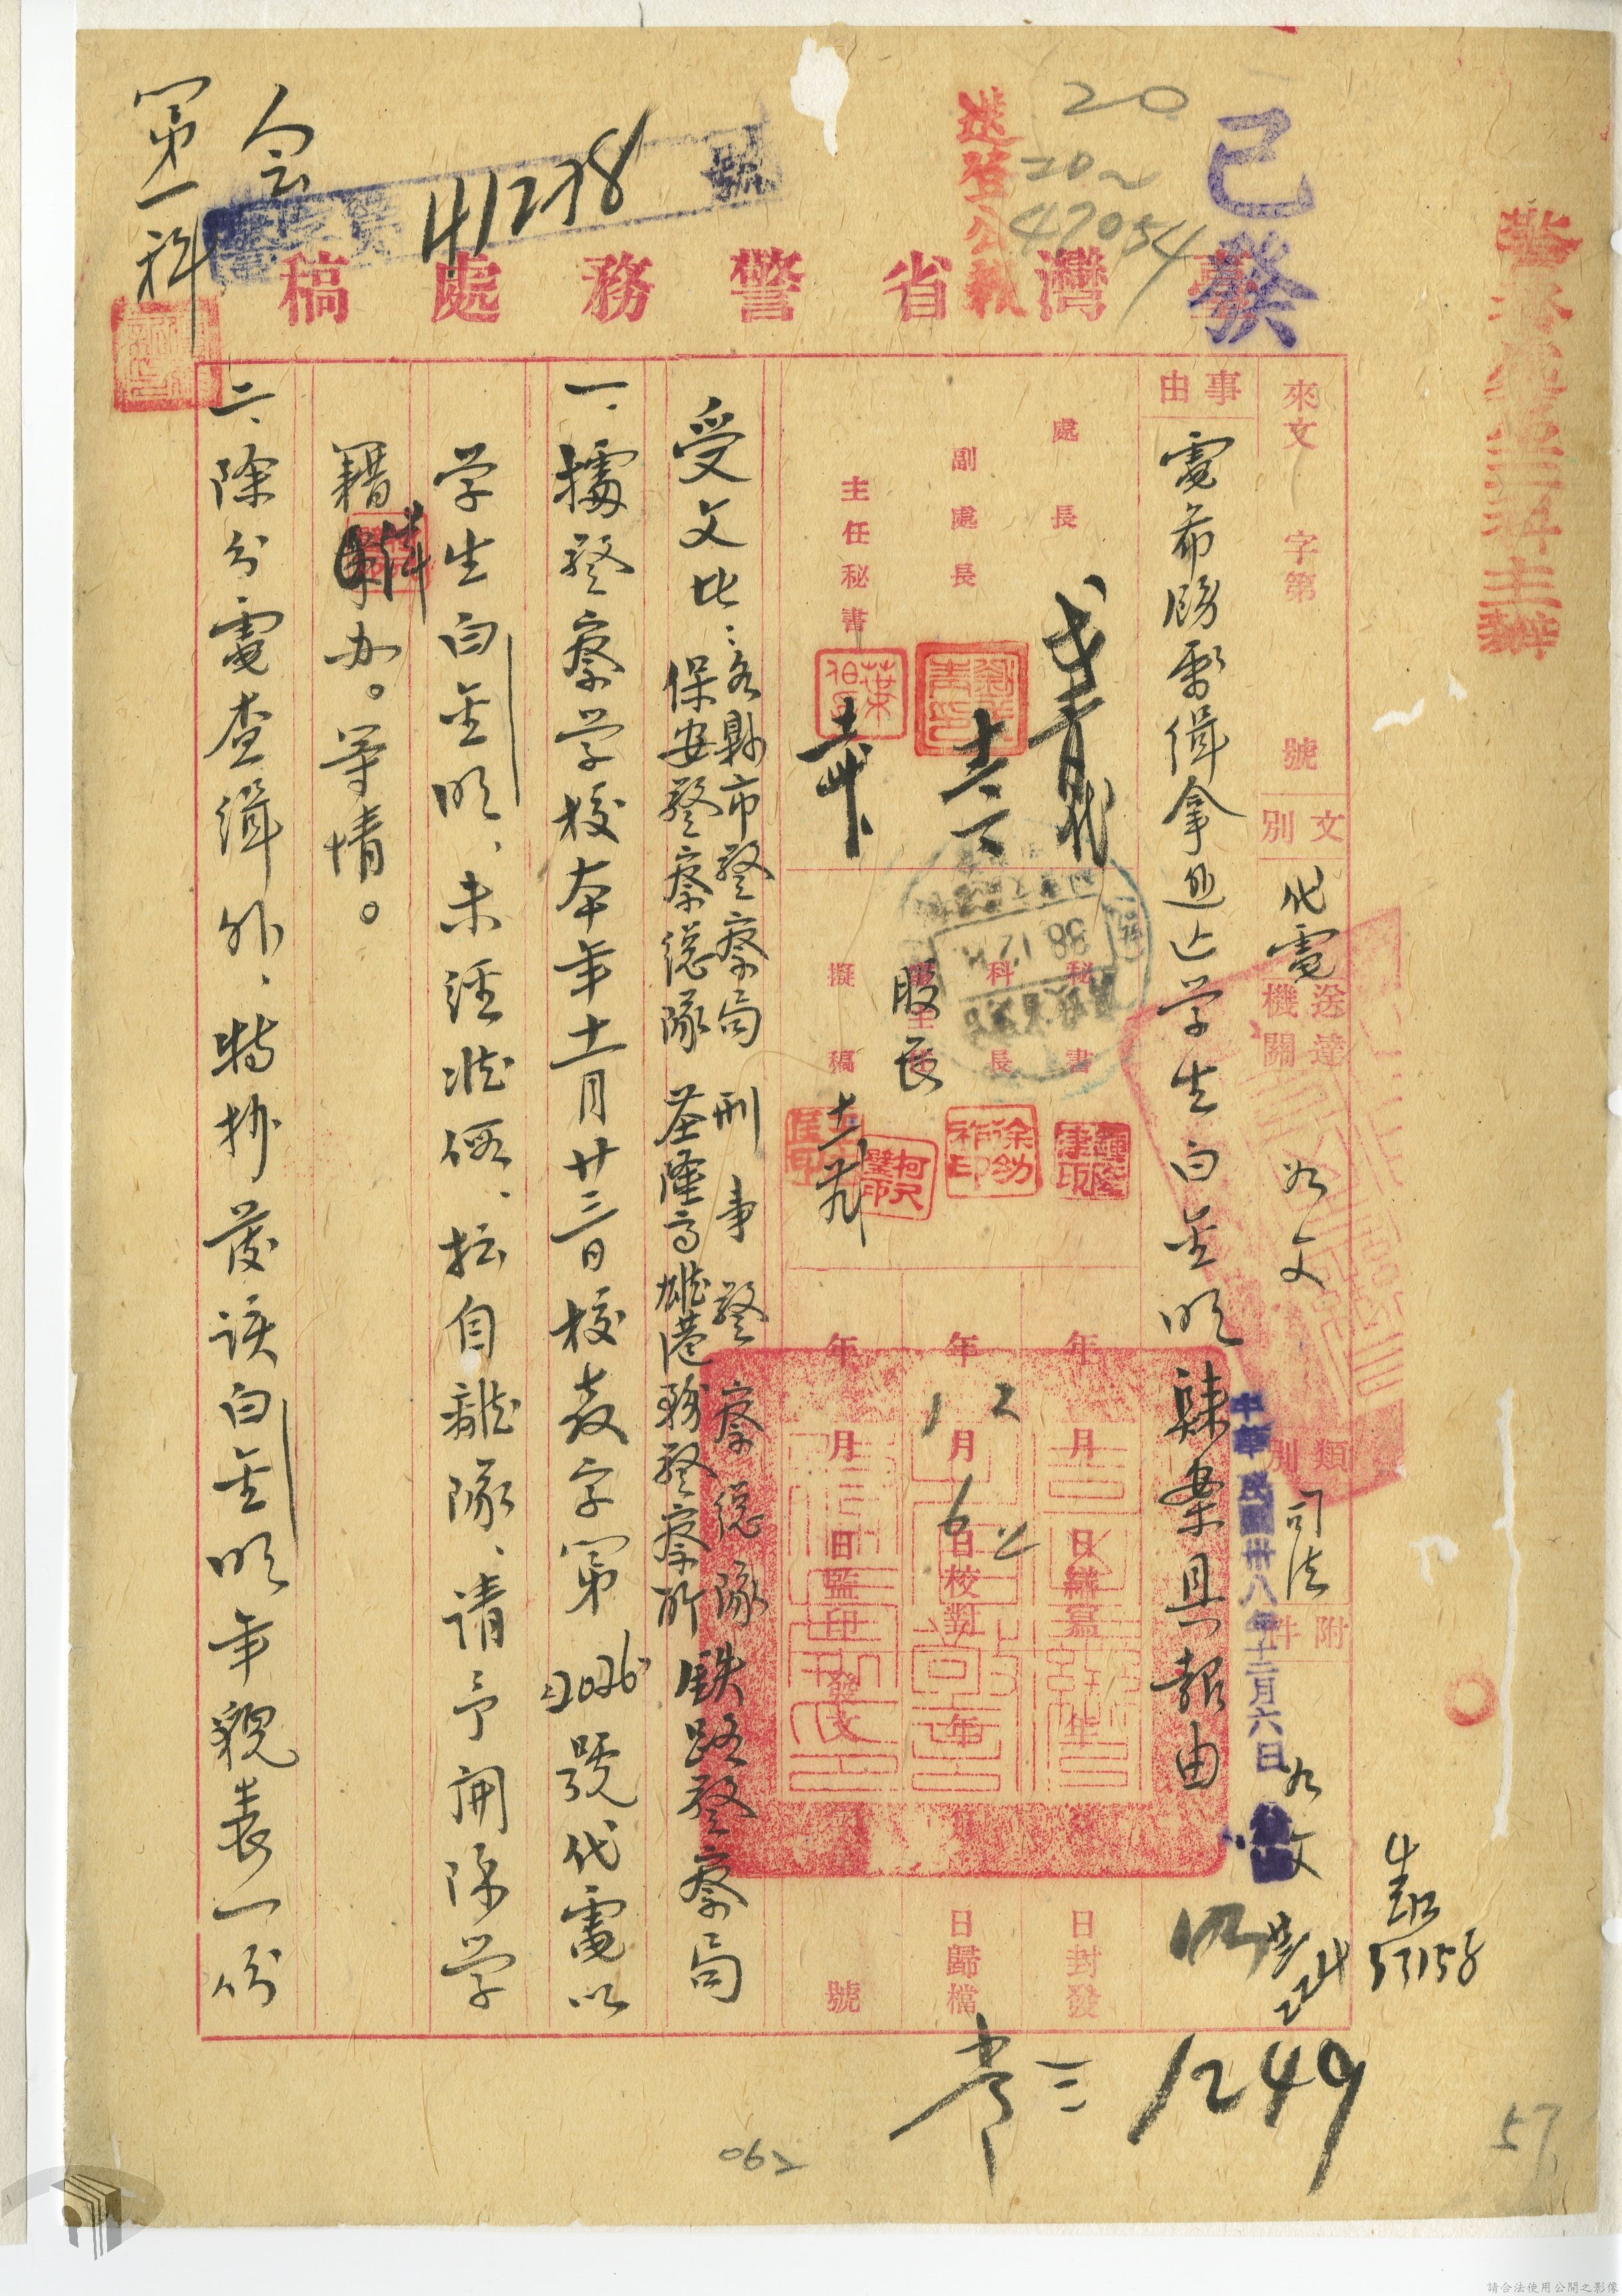 已發
送登公報
20
20~
47054
警務處第三科主辦
會
第一科
41238
號
臺灣省警務處稿
來文 字第 號
文別 代電
送達機關 如文
類別 司法
附件 如文
事由
電希賜飭緝拿逃亡学生白金明歸案具報由
中華民國卅八年十二月六日
處長
副處長
主任秘書
秘書
科長
股長
擬稿
年 月 日繕寫
年 12 月 6 日校對
年 月 日監印
發文 號
年 日封發
年 日歸檔
受文者：各縣市警察局 刑事警察總隊 鉄路警察局
保安警察總隊 基隆高雄港務警察所
一、據警察学校本年十一月廿三日校教字第2026號代電以
学生白金明、未経准假、擅自離隊、請予開除学
籍
办。等情。
二、除分電查緝外、特抄發該白金明年貌表一份
57158
1249
062
57
請合法使用公開之影像